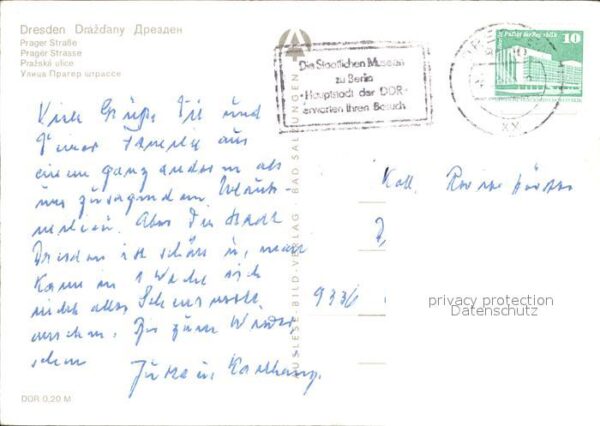 Dresden Drážďany Дрезден
Prager Straße
Prager Strasse
Pražská ulice
Улица Прагер штрассе
Die Staatlichen Museen
zu Berlin
-Hauptstadt der DDR-
erwarten Ihren Besuch
10
XX
Viele Grüße Dir und
Deiner Familie aus
einem ganz anderen als
uns zusagenden Urlaub-
Aber die Stadt
Dresden ist schön u. man
kann in 1 Woche sich
nicht alles Sehenswerte
ansehen. Bis zum Wieder-
sehen
Koll.
9336
privacy protection
Datenschutz
AUSLESE-BILD-VERLAG · BAD SALZUNGEN
DDR 0,20 M